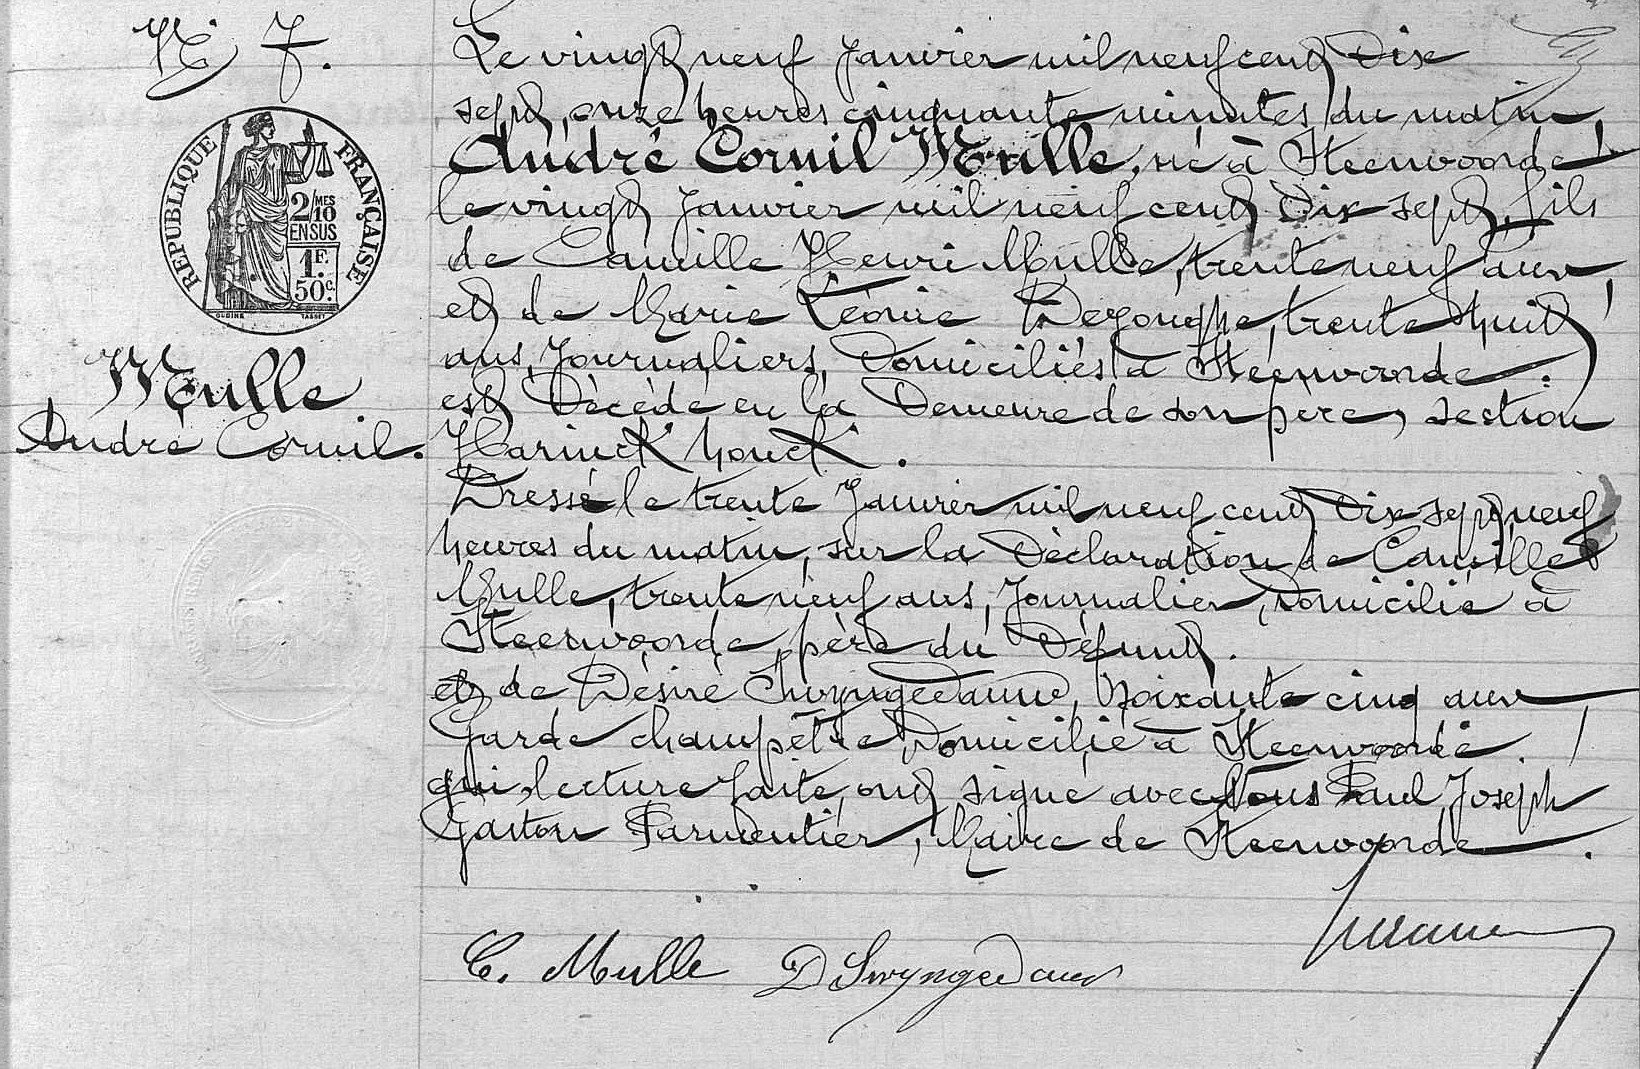 N° 7.
RÉPUBLIQUE FRANÇAISE
2/MES
10
EN SUS
1F.
50c.
OUDINÉ TASSET
Mulle
André Cornil.
Le vingt neuf Janvier mil neuf cent Dix
sept, onze heures cinquante minutes du matin,
André Cornil Mulle, né à Steenvoorde
le vingt Janvier mil neuf cent Dix sept, fils
de Camille Henri Mulle, trente neuf ans,
et de Marie Léonie Dezonghe, trente huit
ans, Journaliers, Domiciliés à Steenvoorde.
est Décédé en la Demeure de son père, section
Harinck houck.
Dressé le trente Janvier mil neuf cent Dix sept, neuf
heures du matin, sur la Déclaration de Camille
Mulle, trente neuf ans, Journalier, Domicilié à
Steenvoorde, père du Défunt.
et de Désiré Swyngedauw, soixante cinq ans
Garde champêtre, Domicilié à Steenvoorde.
qui, lecture faite, ont signé avec Nous Paul Joseph
Gaston Parmentier, Maire de Steenvoorde.
C. Mulle D Swyngedauw